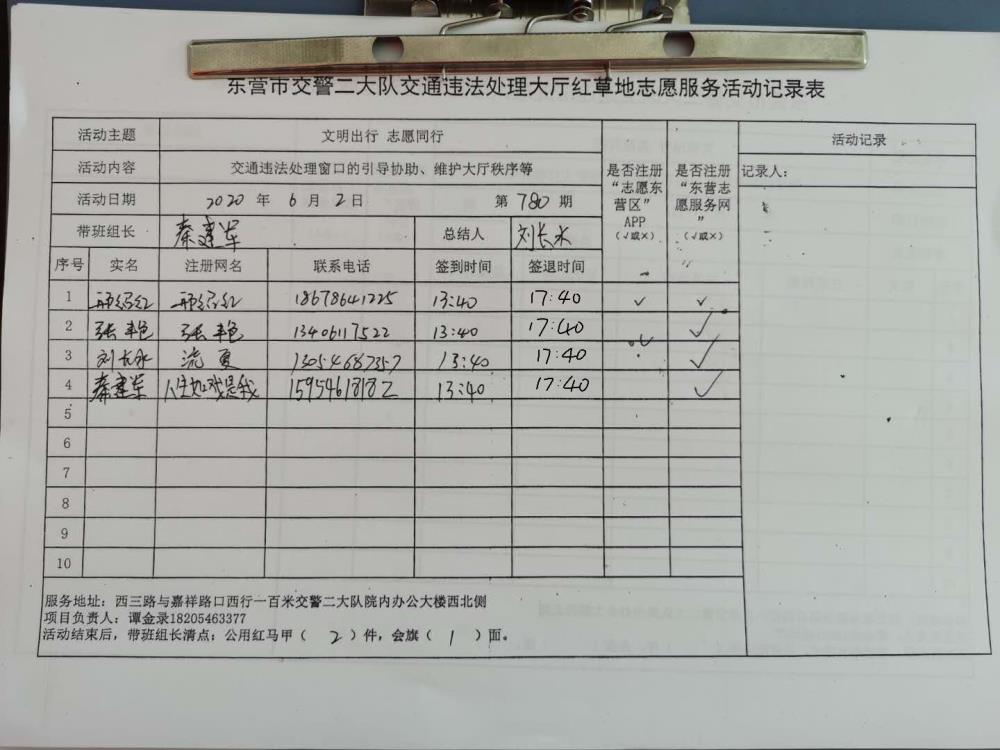 东营市交警二大队交通违法处理大厅红草地志愿服务活动记录表
活动主题 文明出行 志愿同行
活动内容 交通违法处理窗口的引导协助、维护大厅秩序等
活动日期 2020 年 6 月 2 日 第 780 期
带班组长 秦建军 总结人 刘长水
是否注册“志愿东营区”APP（√或×）
是否注册“东营志愿服务网”（√或×）
活动记录
记录人：
序号 实名 注册网名 联系电话 签到时间 签退时间
1 18678641225 13:40 17:40 ✓ ✓
2 张丰色 张丰色 13406117522 13:40 17:40 ✓ ✓
3 刘长水 流夏 13054687357 13:40 17:40 ✓
4 秦建军 人生如戏是我 15954618182 13:40 17:40 ✓
5
6
7
8
9
10
服务地址：西三路与嘉祥路口西行一百米交警二大队院内办公大楼西北侧
项目负责人：谭金录18205463377
活动结束后，带班组长清点：公用红马甲（ 2 ）件，会旗（ 1 ）面。